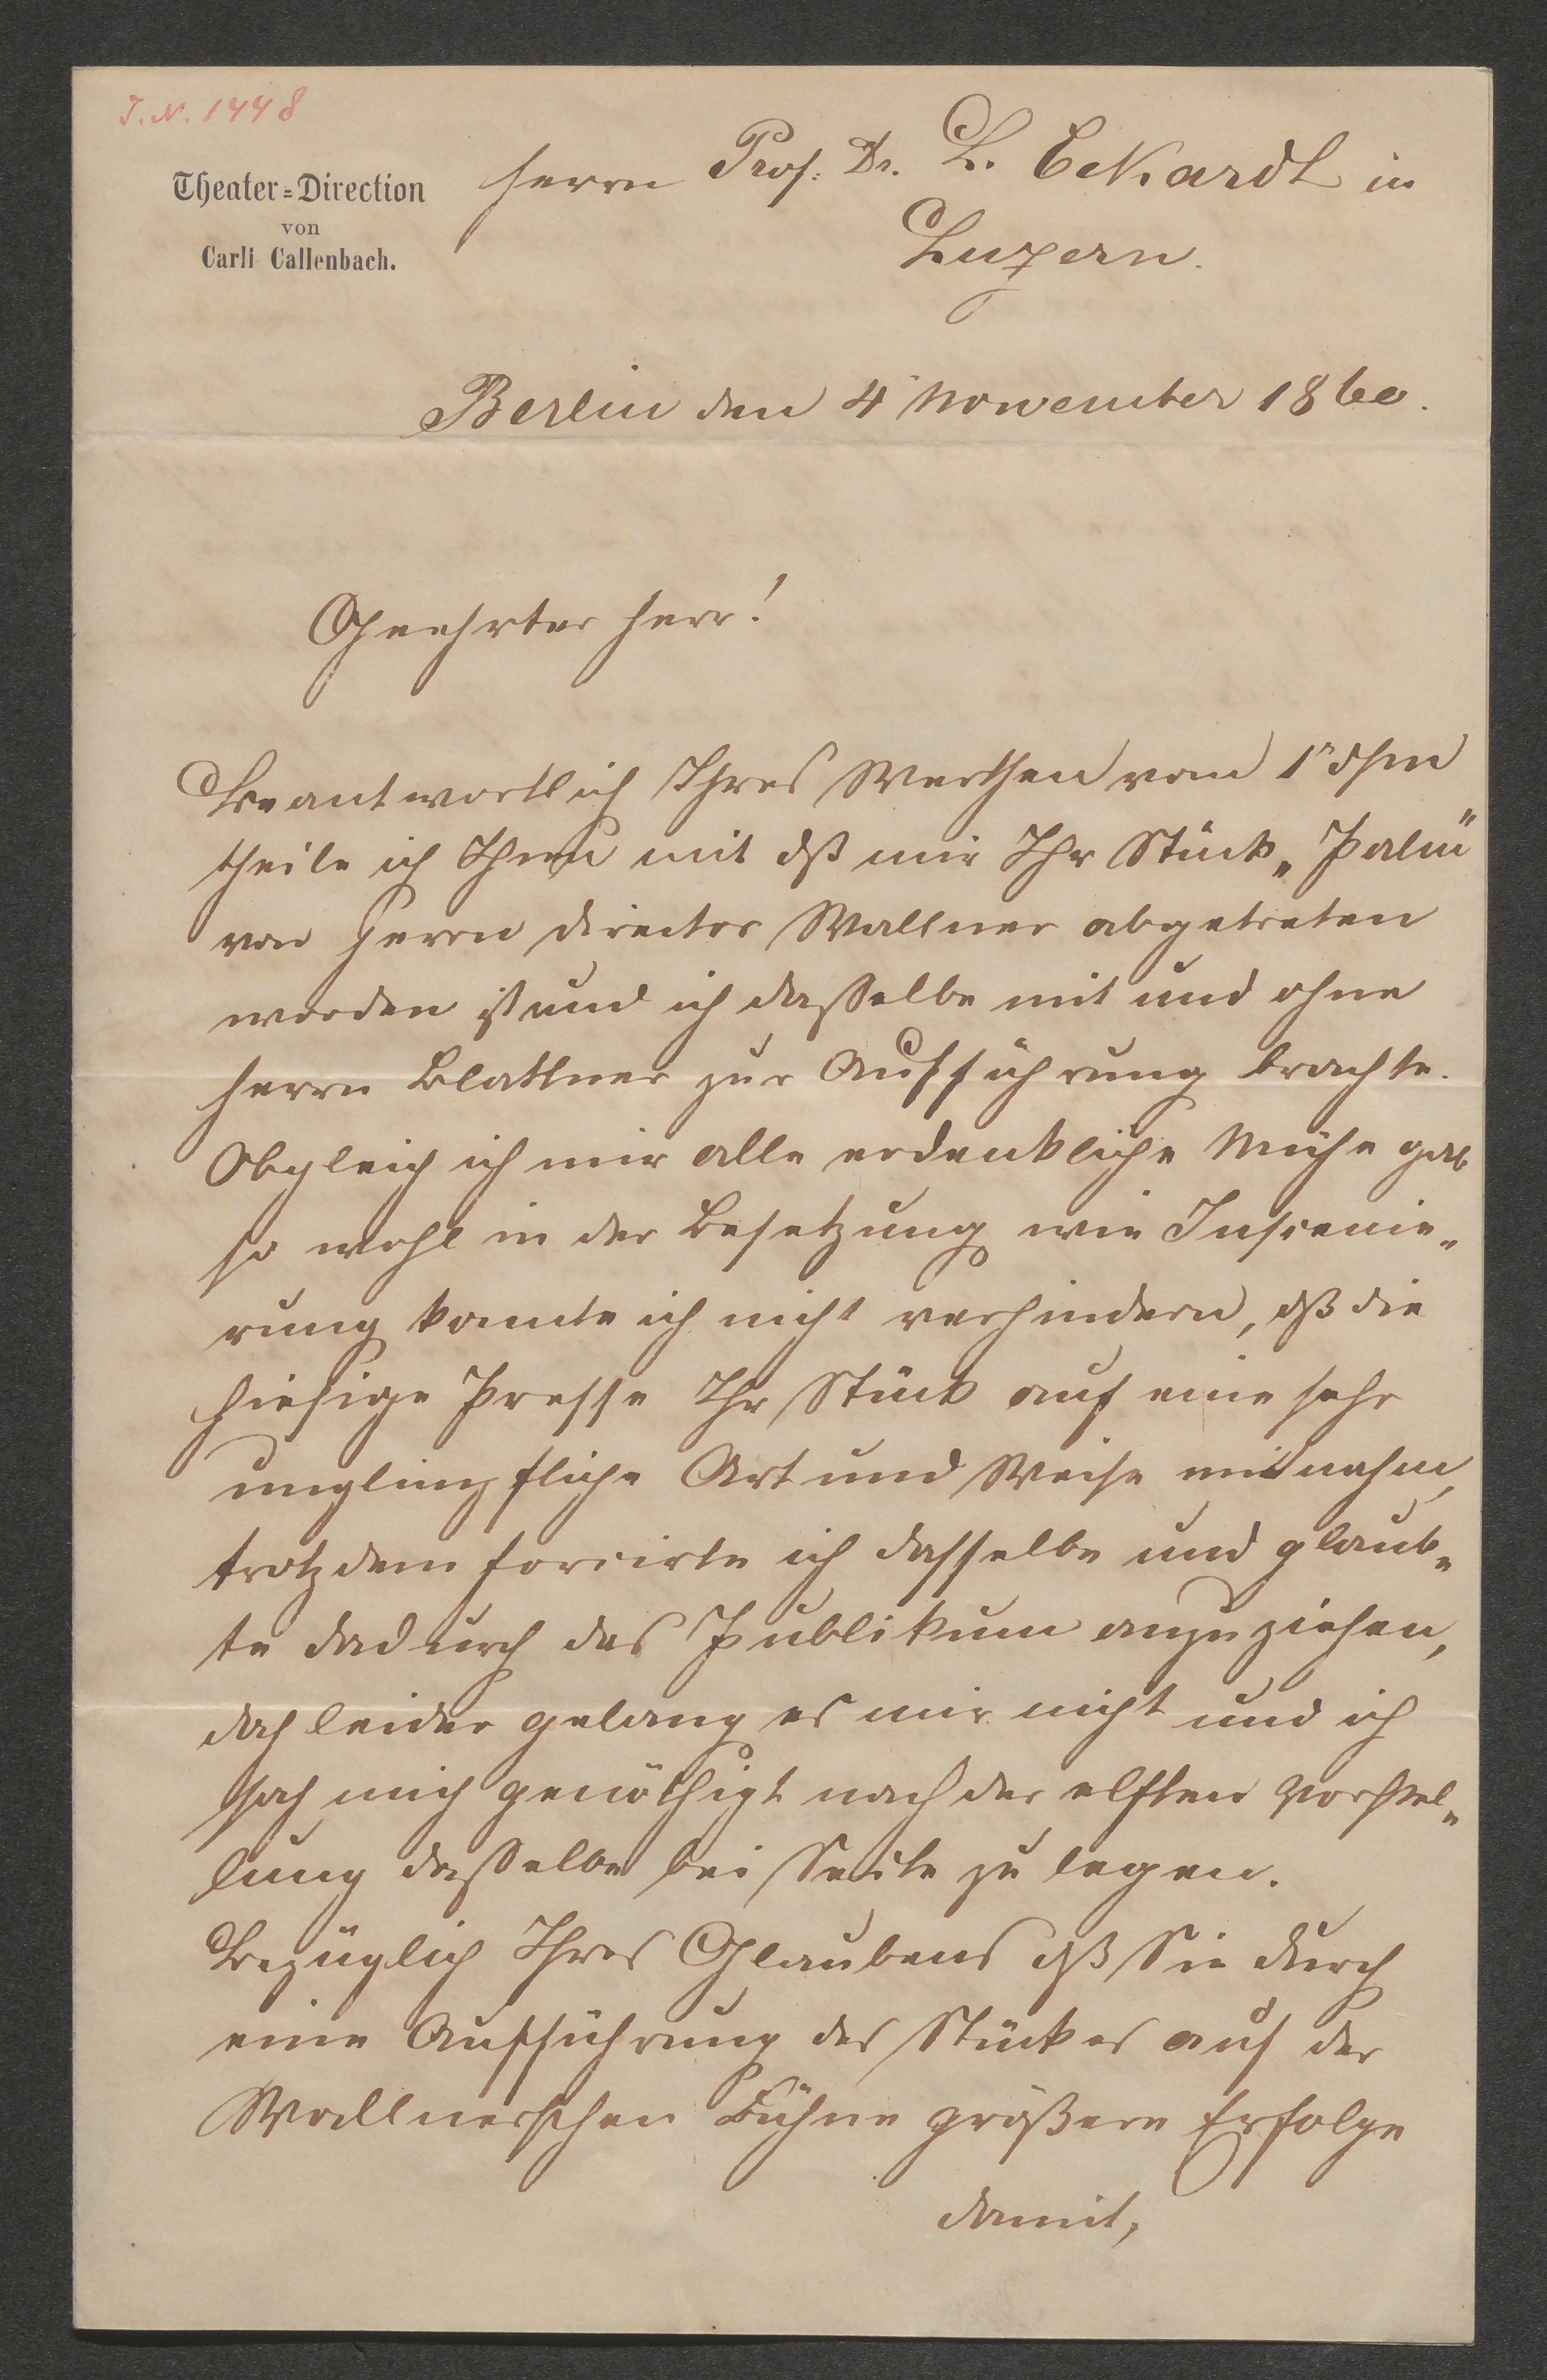 J. N. 1448
Theater=Direction
von
Carli Callenbach.
Herrn Prof. Dr. L. Eckardt in
Luzern.
Berlin den 4 November 1860.
Geehrter Herr!
Beantwortlich Ihres Werthen vom 1"
theile ich Ihnen mit dß mir Ihr Stück „Palm"
von Herrn Director Wallner abgetreten
worden ist und ich dasselbe mit und ohne
Herrn Blattner zur Aufführung brachte.
Obgleich ich mir alle erdenkliche Mühe gab
so wohl in der Besetzung wie Inscenie„
rung konnte ich nicht verhindern, dß die
hiesige Presse Ihr Stück auf eine sehr
unglimpfliche Art und Weise mitnahm,
trotzdem forcirte ich dasselbe und glaub„
te dadurch das Publikum anzuziehen,
doch leider gelang es mir nicht und ich
sah mich genöthigt nach der elften Vorstel„
lung dasselbe bei Seite zu legen.
Bezüglich Ihres Glaubens dß Sie durch
eine Aufführung des Stückes auf der
Wallnerschen Bühne größere Erfolge
damit,